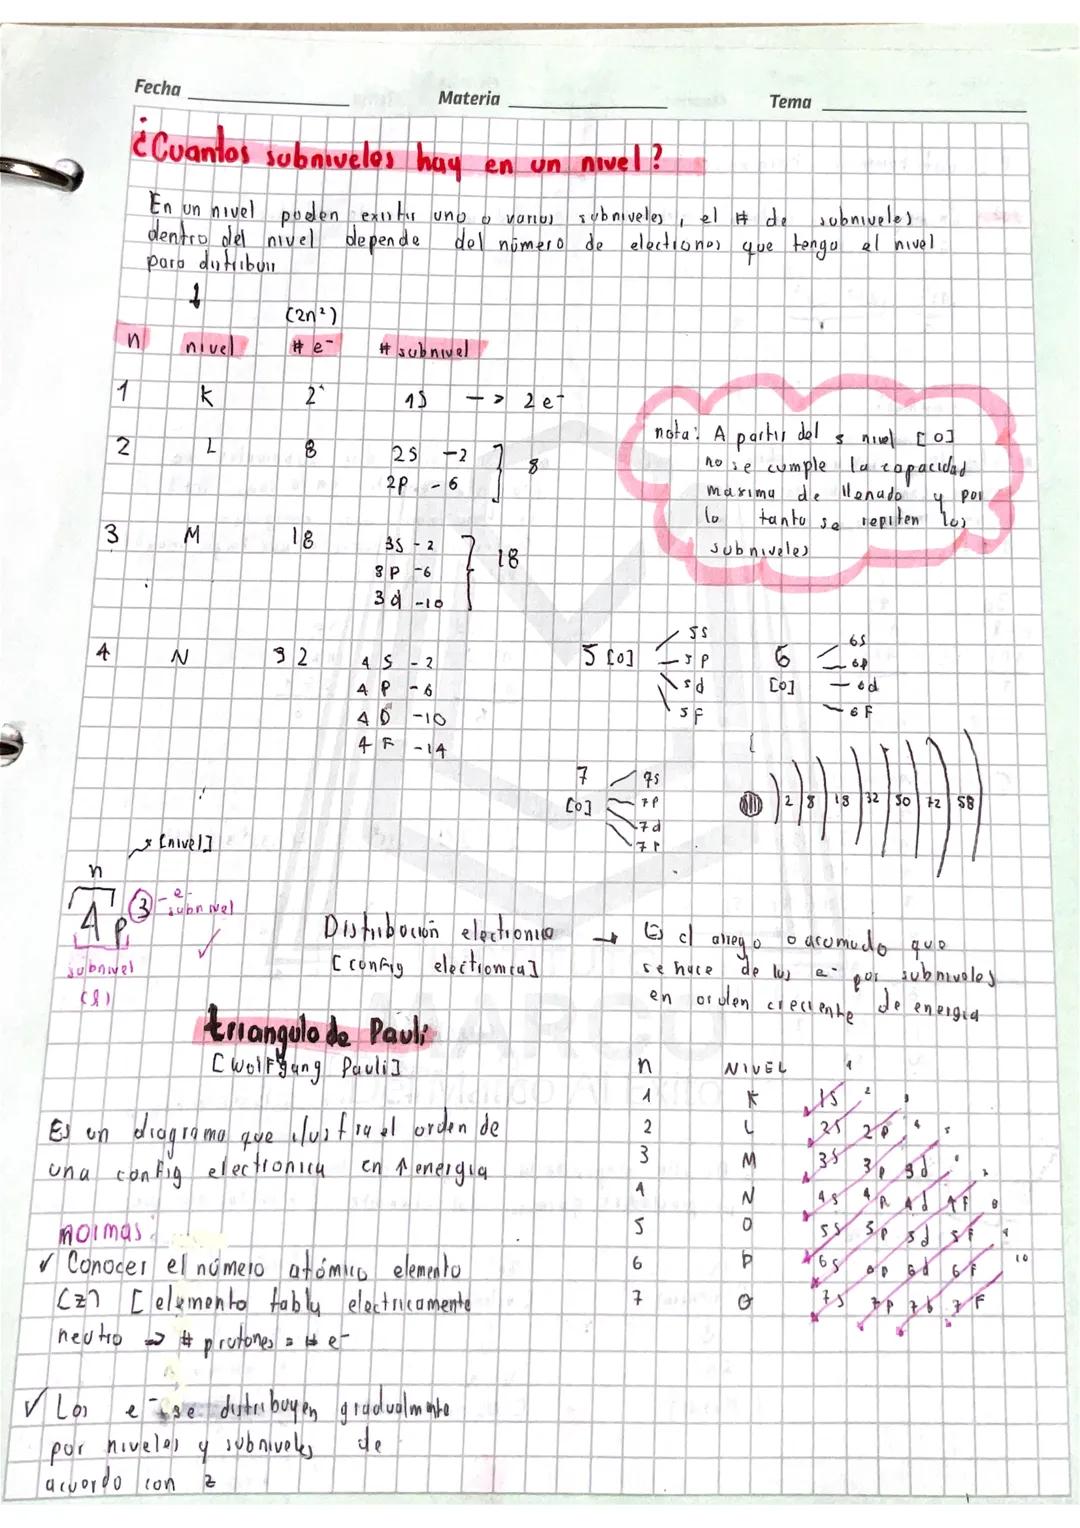 Fecha Materia Tema
¿Cuantos subniveles hay en un nivel?
En un nivel pueden existir uno o varios subniveles, el # de subniveles
dentro del nivel depende del número de electrones que tenga el nivel
para distribuir
↓
(2n²)
n nivel # e⁻ # subnivel
1 K 2 1S -> 2 e⁻
2 L 8 2S -2
2P -6
8
3 M 18 3S -2
3P -6
3d -10
18
4 N 32 4S -2
4P -6
4D -10
4F -14
nota: A partir del 5 nivel [O]
no se cumple la capacidad
maxima de llenado y por
lo tanto se repiten los
subniveles
5 [O] 5S
5P
5d
5F
6 [O] 6S
6P
6d
6F
7 [O] 7S
7P
7d
7F
2 8 18 32 50 72 58
[nivel]
n
4p ③ - e⁻ subnivel
✓
subnivel
(l)
Distribución electronica → Es el arreglo o acomodo que
[config electronica] se hace de los e⁻ por subniveles
en orden creciente de energia
triangulo de Pauli
[Wolfgang Pauli]
Es un diagrama que ilustra el orden de
una config electronica en ↑ energia
n NIVEL
1 K 1S
2 L 2S 2P
3 M 3S 3p 3d
4 N 4S 4P 4d 4F
5 O 5S 5p 5d 5F
6 P 6S 6P 6d 6F
7 Q 7S 7P 7d 7F
normas:
✓ Conocer el número atómico elemento
(z) [elemento tabla electricamente
neutro → # protones = # e⁻
✓ Los e⁻ se distribuyen gradualmente
por niveles y subniveles de
acuerdo con z